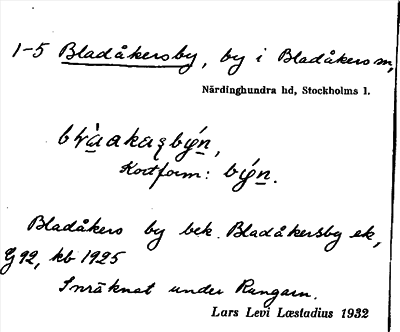 1-5 Bladåkersby, by i Bladåkers sn,
Närdinghundra hd, Stockholms l.
Kortform: bý̱n.
Bladåkers by bek. Bladåkersby ek,
G 92, kb 1925
Inräknat under Rungarn.
Lars Levi Læstadius 1932